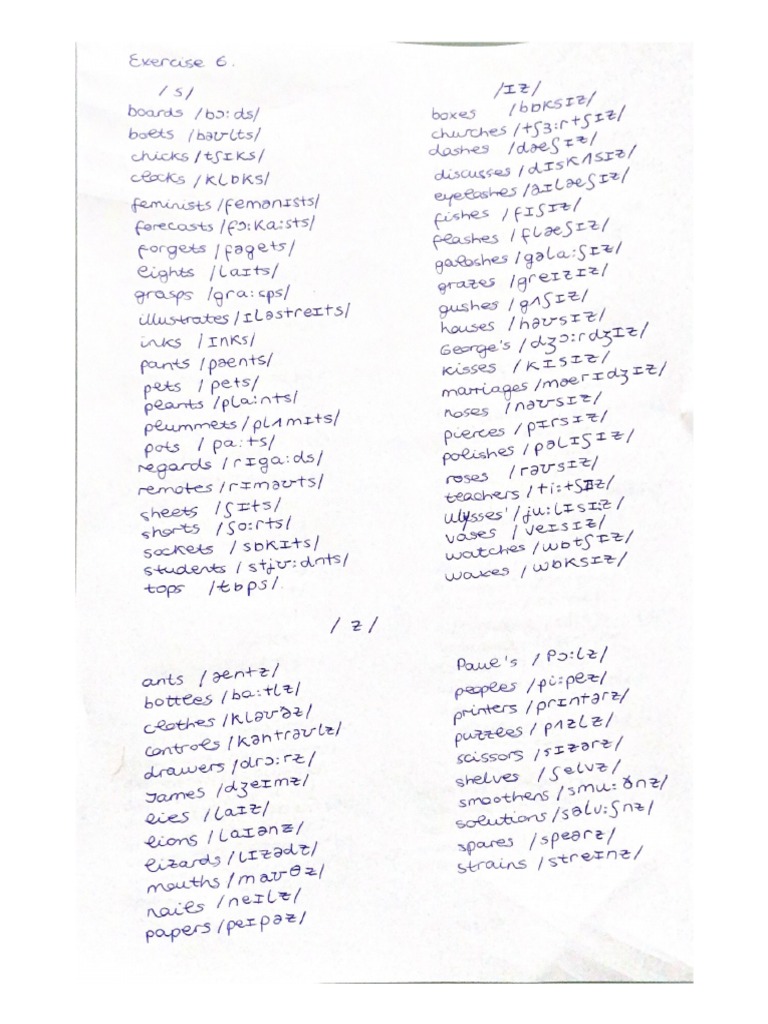 Exercise 6.
/s/
boards /bɔ:ds/
bolts /bəʊlts/
chicks /tʃɪks/
clocks /klɒks/
feminists /femənɪsts/
forecasts /fɔ:ka:sts/
forgets /fəgets/
lights /laɪts/
grasps /gra:sps/
illustrates /ɪləstreɪts/
inks /ɪnks/
pants /pəents/
pets /pets/
plants /pla:nts/
plummets /plʌmɪts/
pots /pa:ts/
regards /rɪga:ds/
remotes /rɪməʊts/
sheets /ʃɪts/
shorts /ʃo:rts/
sockets /sɒkɪts/
students /stjʊ:dnts/
tops /tɒps/.
/ɪz/
boxes /bɒksɪz/
churches /tʃɜ:rtʃɪz/
dashes /dæʃɪz/
discusses /dɪskʌsɪz/
eyelashes /aɪlæʃɪz/
fishes /fɪʃɪz/
flashes /flæʃɪz/
galoshes /gəla:ʃɪz/
grazes /greɪzɪz/
gushes /gʌʃɪz/
houses /həʊsɪz/
George's /dʒɔ:rdʒɪz/
kisses /kɪsɪz/
marriages /mærɪdʒɪz/
noses /nəʊsɪz/
pierces /pɪrsɪz/
polishes /pəlɪʃɪz/
roses /rəʊsɪz/
teachers /ti:tʃɪz/
Ulysses' /ju:lɪsɪ:z/
vases /veɪsɪz/
watches /wɒtʃɪz/
waxes /wɒksɪz/
/z/
ants /əentz/
bottles /ba:tlz/
clothes /kləʊðz/
controls /kəntrəʊlz/
drawers /drɔ:rz/
James /dʒeɪmz/
lies /laɪz/
lions /laɪənz/
lizards /lɪzədz/
mouths /maʊθz/
nails /neɪlz/
papers /peɪpəz/
Paul's /pɔ:lz/
peoples /pi:plz/
printers /prɪntərz/
puzzles /pʌzlz/
scissors /sɪzərz/
shelves /ʃelvz/
smoothens /smu:ðnz/
solutions /səlu:ʃnz/
spares /speərz/
strains /streɪnz/